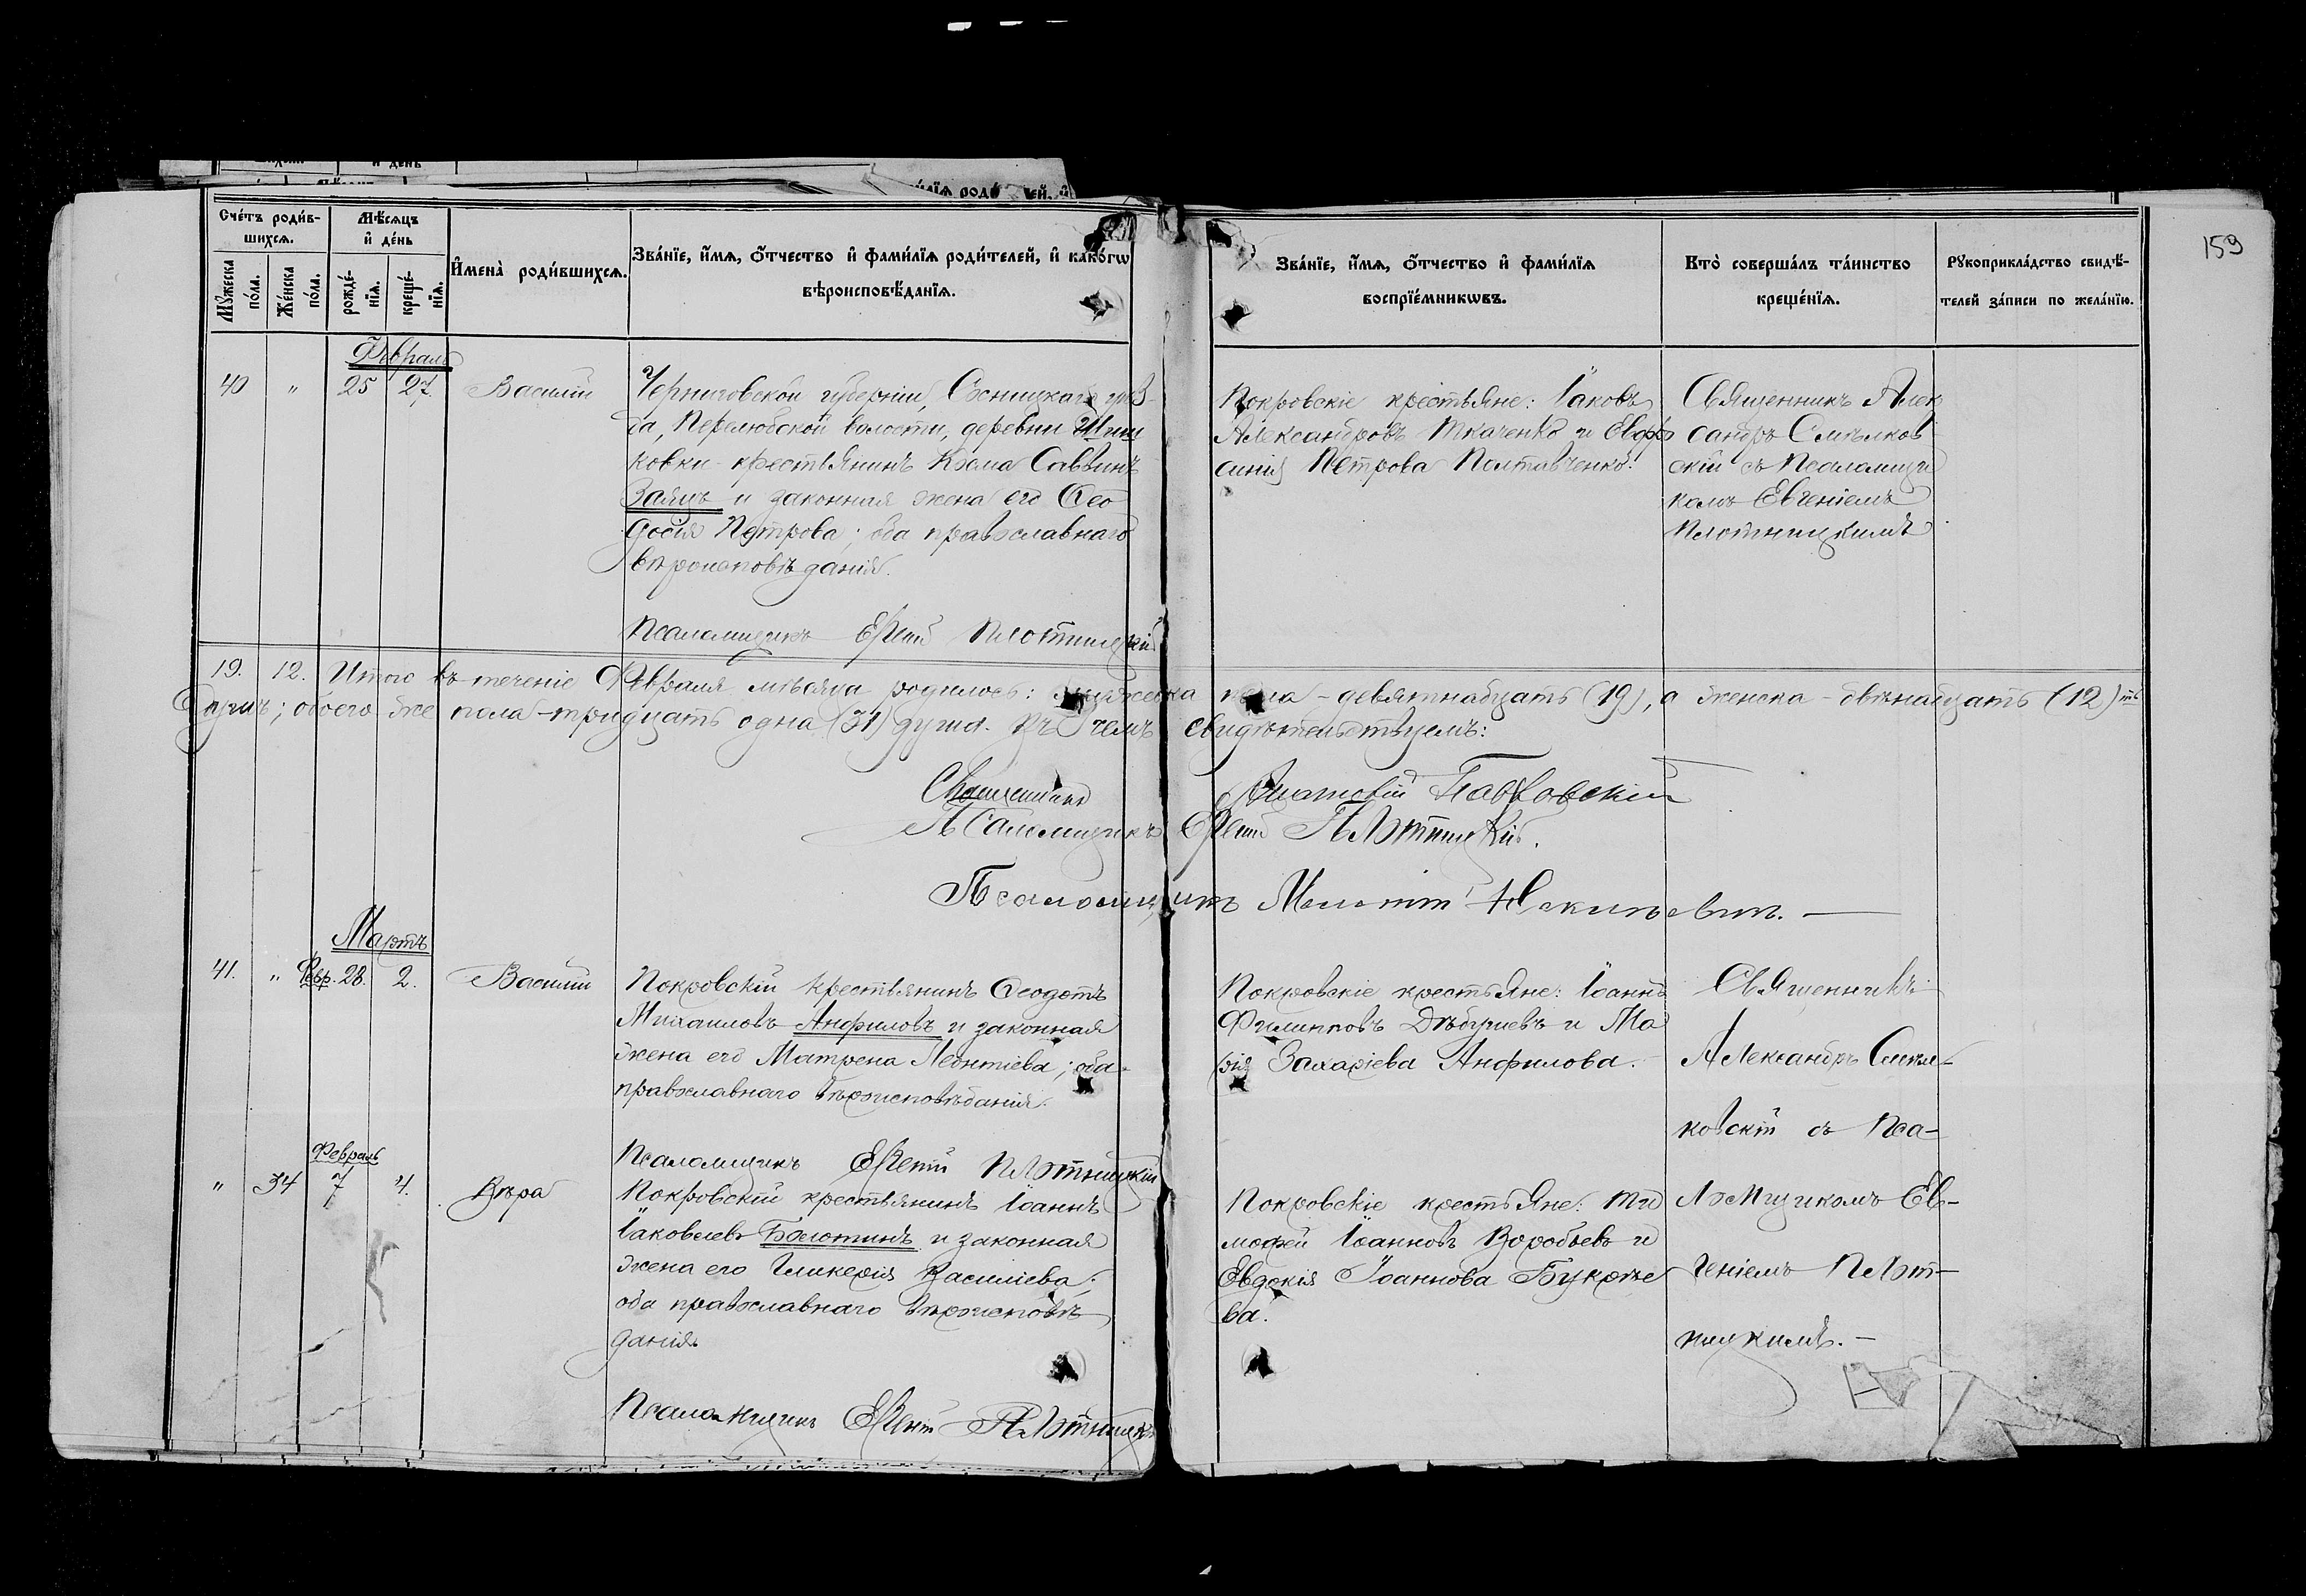 159
Счетъ родив-
шихся.
Мѣсяцъ
и день
Мужеска
пола.
Женска
пола.
рожде-
нія.
креще-
нія.
Имена родившихся.
Званіе, имя, отчество и фамилія родителей, и какогѡ
вѣроисповѣданія.
Званіе, имя, отчество и фамилія
воспріемникѡвъ.
Кто совершалъ таинство
крещенія.
Рукоприкладство свидѣ-
телей записи по желанію.
Февраль
40 „ 25 27. Василій
Черниговской губерніи, Сосницкаго уѣз-
да, Перелюбской волости, деревни Шиш
ковки крестьянинъ Косма Саввинъ
Заяцъ и законная жена его Ѳео
досія Петрова; оба православнаго
вѣроисповѣданія.
Псаломщикъ Евгеній Плотницкій
Покровскіе крестьяне: Іаковъ
Александровъ Ткаченко и Евфро
синія Петрова Полтавченко.
Священникъ Алек
сандръ Смѣлков
скій съ Псаломщи
комъ Евгеніемъ
Плотницкимъ
19. 12. Итого въ теченіе Февраля мѣсяца родилось: мужеска пола - девятнадцать (19), а женска - двѣнадцать (12) ть
душъ; обоего же пола - тридцать одна (31) душа. Въ чемъ свидѣтельствуемъ:
Священникъ Павловскій
Псаломщикъ Евгеній Плотницкій.
Псаломщикъ
Мартъ
41. „ Февр. 28. 2. Василій
Покровскій крестьянинъ Ѳеодотъ
Михаиловъ Анфиловъ и законная
жена его Матрена Леонтіева; оба
православнаго вѣроисповѣданія.
Псаломщикъ Евгеній Плотницкій
Покровскіе крестьяне: Іоаннъ
Филипповъ Дѣбушевъ и Ма
рія Захаріева Анфилова.
Священникъ
Александръ Смѣл-
ковскій съ Пса-
Февраль
„ 34 7 4. Вѣра
Покровскій крестьянинъ Іоаннъ
Іаковлевъ Болотинъ и законная
жена его Гликерія Василіева;
оба православнаго вѣроисповѣ
данія.
Псаломщикъ Евгеній Плотницкій
Покровскіе крестьяне: Ти
моѳей Іоанновъ Воробьевъ и
Евдокія Іоаннова Букоѣе
ва.
ломщикомъ Ев-
геніемъ Плот-
ницкимъ. —